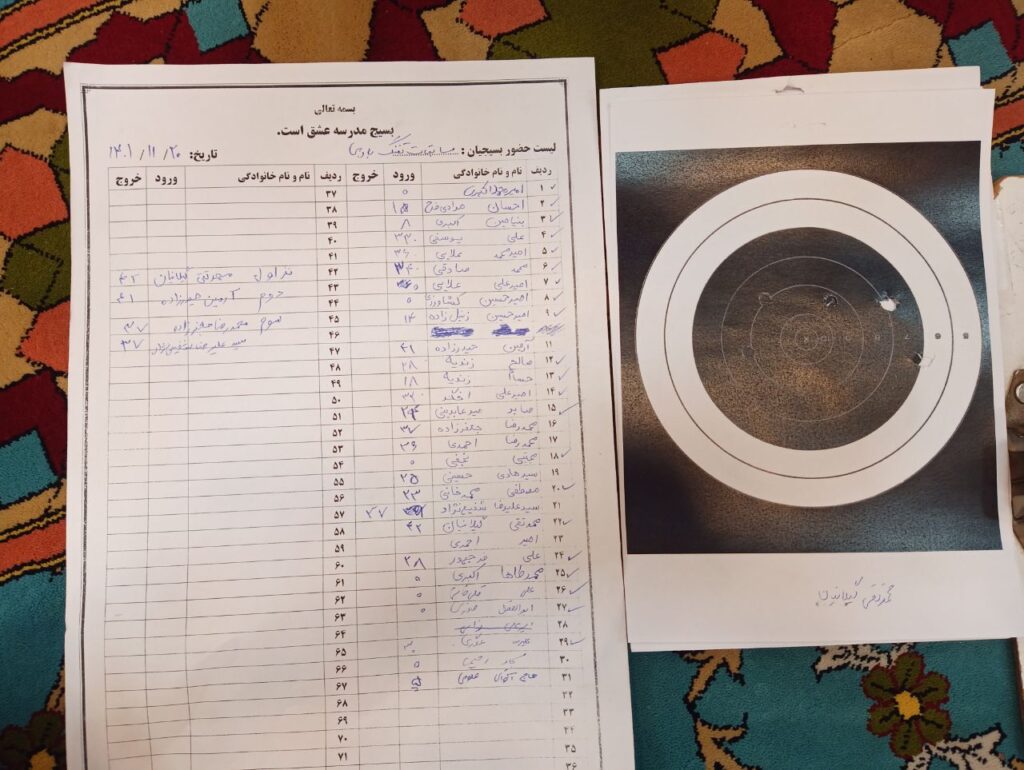 بسمه تعالی
بسیج مدرسه عشق است.
لیست حضور بسیجیان : مسابقات تفنگ بادی تاریخ: ۱۴۰۱/۱۱/۲۰
ردیف نام و نام خانوادگی ورود خروج ردیف نام و نام خانوادگی ورود خروج
۱ امیرمحمد اکبری ۰ ۳۷
۲ احسان مرادی فرح ۳۸
۳ بنیامین اکبری ۸ ۳۹
۴ علی یوسفی ۳۳ ۴۰
۵ امیرمحمد علایی ۴۱
۶ محمد صادقی ۳۴ ۴۲ نفر اول محمدتقی گیلانیان ۴۲
۷ امیرعلی علایی ۴۳ دوم آرمین حیدرزاده ۴۱
۸ امیرحسین کشاورزی ۰ ۴۴
۹ امیرحسین زینل زاده ۱۴ ۴۵ سوم محمدرضا جعفرزاده ۳۷
۴۶ سید علیرضا شفیع نژاد ۳۷
۱۱ آرمین حیدرزاده ۴۱ ۴۷
۱۲ صالح زندیه ۲۸ ۴۸
۱۳ حسام زندیه ۱۸ ۴۹
۱۴ امیرعلی ۵۰
۱۵ میرعابدینی ۵۱
۱۶ محمدرضا جعفرزاده ۳۷ ۵۲
۱۷ محمدرضا احمدی ۳۹ ۵۳
۱۸ مجتبی نجفی ۰ ۵۴
۱۹ سیدهادی حسینی ۲۵ ۵۵
۲۰ مصطفی محمدخانی ۲۳ ۵۶
۲۱ سیدعلیرضا شفیع نژاد ۳۷ ۵۷
۲۲ محمدتقی گیلانیان ۴۲ ۵۸
۲۳ امیر احمدی ۵۹
۲۴ علی ۲۸ ۶۰
۲۵ محمدطاها اکبری ۰ ۶۱
۲۶ علی ۰ ۶۲
۲۷ ابوالفضل ۰ ۶۳
۲۸ ۶۴
۲۹ ۶۵
۳۰ ۰ ۶۶
۳۱ حاج آقای غلامی ۵ ۶۷
۳۲ ۶۸
۳۳ ۶۹
۳۴ ۷۰
۳۵ ۷۱
۳۶
محمدتقی گیلانیان